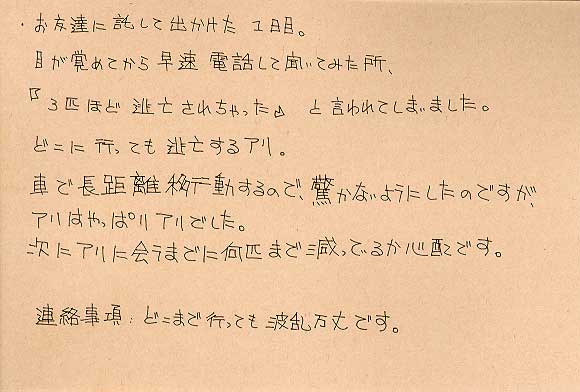 ・お友達に託して出かけた 1日目。
目が覚めてから早速 電話して聞いてみた所、
『3匹ほど 逃亡されちゃった』 と言われてしまいました。
どこに 行っても 逃亡するアリ。
車で長距離移動するので、驚かないようにしたのですが、
アリはやっぱりアリでした。
次にアリに会うまでに何匹まで減っているか心配です。
連絡事項:どこまで行っても波乱万丈です。